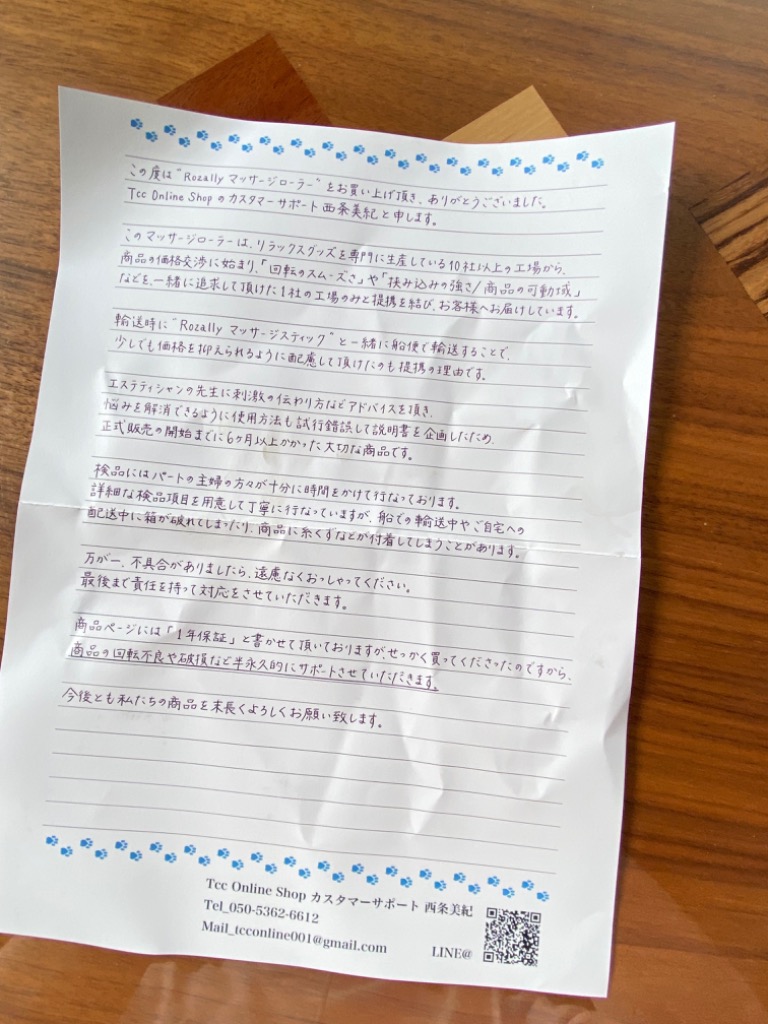 この度は"Rozally マッサージローラー"をお買い上げ頂き、ありがとうございました。
Tcc Online Shop のカスタマーサポート西条美紀と申します。
このマッサージローラーは、リラックスグッズを専門に生産している10社以上の工場から、
商品の価格交渉に始まり、「回転のスムーズさ」や「挟み込みの強さ/商品の可動域」
などを、一緒に追求して頂けた1社の工場のみと提携を結び、お客様へお届けしています。
輸送時に"Rozally マッサージスティック"と一緒に船便で輸送することで、
少しでも価格を抑えられるように配慮して頂けたのも提携の理由です。
エステティシャンの先生に刺激の伝わり方などアドバイスを頂き、
悩みを解消できるように使用方法も試行錯誤して説明書を企画したため、
正式販売の開始までに6ヶ月以上かかった大切な商品です。
検品にはパートの主婦の方々が十分に時間をかけて行なっております。
詳細な検品項目を用意して丁寧に行なっていますが、船での輸送中やご自宅への
配送中に箱が破れてしまったり、商品に糸くずなどが付着してしまうことがあります。
万が一、不具合がありましたら、遠慮なくおっしゃってください。
最後まで責任を持って対応をさせていただきます。
商品ページには「1年保証」と書かせて頂いておりますが、せっかく買ってくださったのですから、
商品の回転不良や破損など半永久的にサポートさせていただきます。
今後とも私たちの商品を末長くよろしくお願い致します。
Tcc Online Shop カスタマーサポート 西条美紀
Tel_050-5362-6612
Mail_tcconline001@gmail.com
LINE@